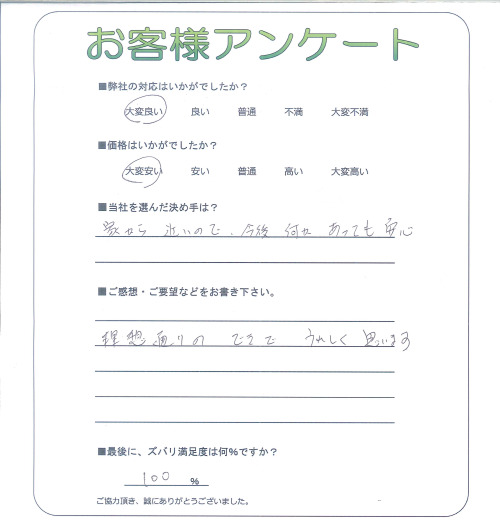 お客様アンケート
■弊社の対応はいかがでしたか？
大変良い 良い 普通 不満 大変不満
■価格はいかがでしたか？
大変安い 安い 普通 高い 大変高い
■当社を選んだ決め手は？
家から近いので、今後何かあっても安心
■ご感想・ご要望などをお書き下さい。
理想通りのできで うれしく思います
■最後に、ズバリ満足度は何%ですか？
100 %
ご協力頂き、誠にありがとうございました。